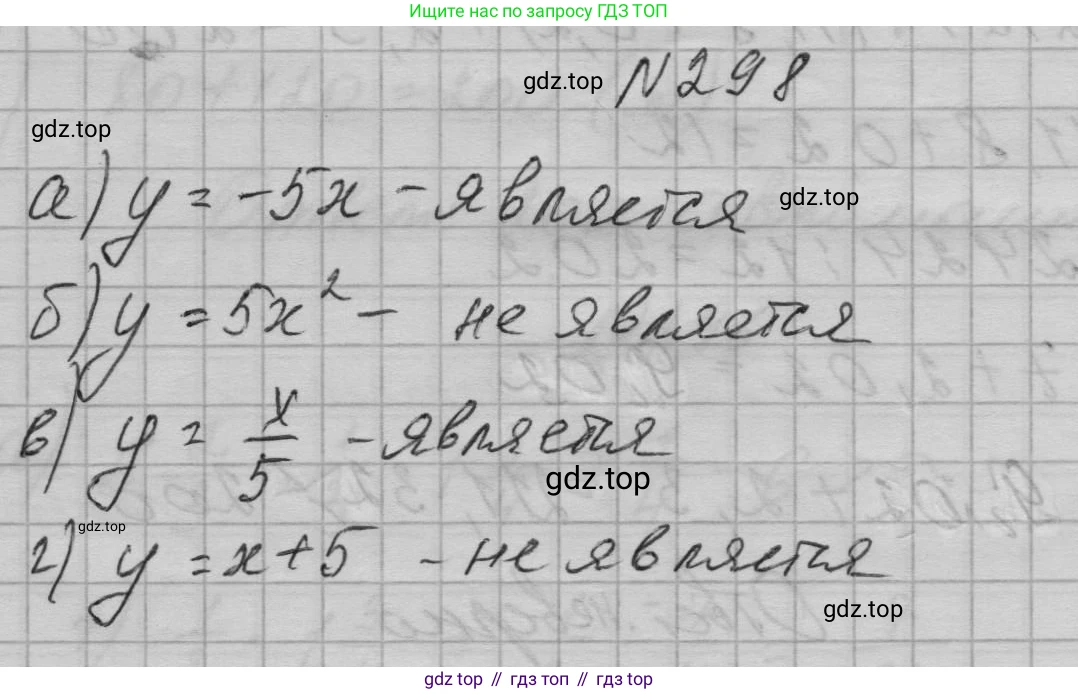 Ищите нас по запросу ГДЗ ТОП
gdz.top N 298
gdz.top
а) y = -5x - является gdz.top
б) y = 5x² - не является
в) y = x/5 - является
gdz.top
gdz.top
г) y = x+5 - не является
gdz.top
gdz top // гдз топ // гдз top